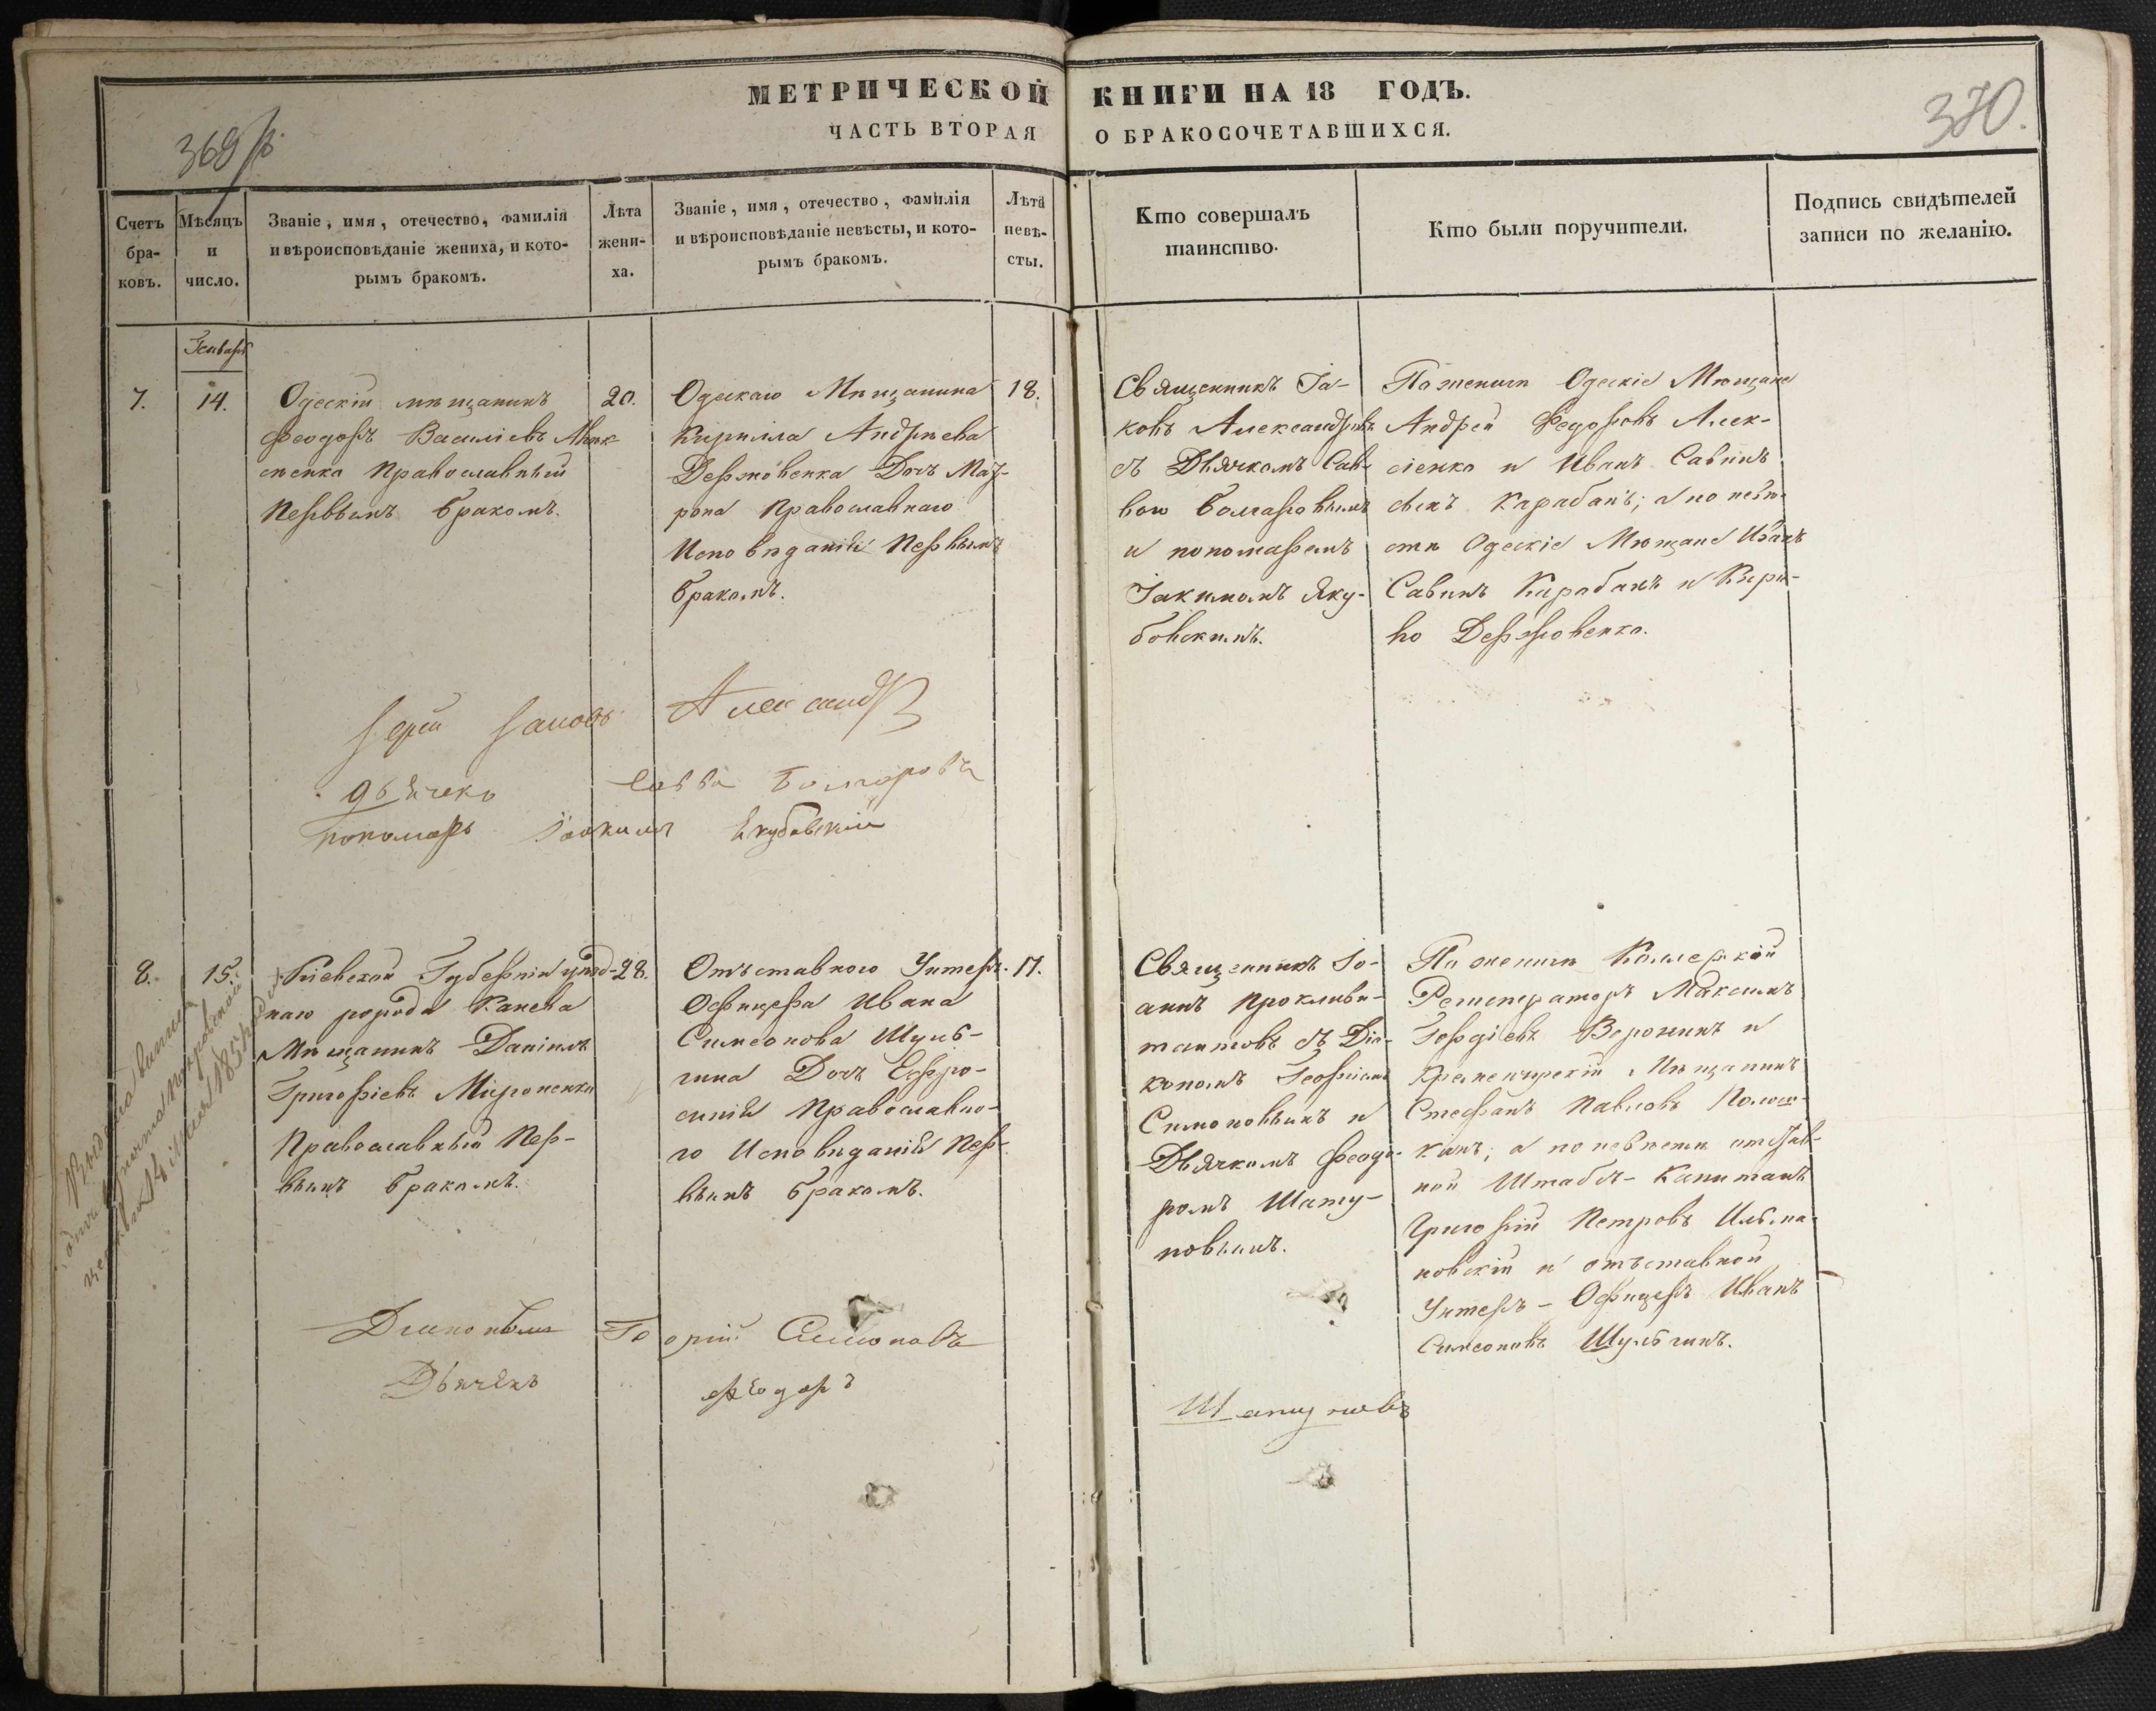 МЕТРИЧЕСКОЙ КНИГИ НА 18 ГОДЪ.
ЧАСТЬ ВТОРАЯ О БРАКОСОЧЕТАВШИХСЯ.
369
370.
Счетъ бра-ковъ.
Мѣсяцъ и число.
Званіе, имя, отечество, фамилія
и вѣроисповѣданіе жениха, и кото-
рымъ бракомъ.
Лѣта жени-ха.
Званіе, имя, отечество, фамилія
и вѣроисповѣданіе невѣсты, и кото-
рымъ бракомъ.
Лѣта невѣ-сты.
Кто совершалъ
таинство.
Кто были поручители.
Подпись свидѣтелей
записи по желанію.
Генварь
7.
14.
Одескій мѣщанинъ
Феодоръ Василіевъ
Православный
Первымъ бракомъ.
20.
Одескаго Мѣщанина
Кирилла Андреева
Держовенка Дочъ Мат-
рона Православнаго
Исповѣданія Первымъ
бракомъ.
18.
Священникъ Іа-
ковъ Александровъ
съ Дьячкомъ Сав-
вою Болгаровымъ
и пономаремъ
Іакимомъ Яку-
бовскимъ.
По женихѣ Одескіе Мѣщане
Андрей Федоровъ Алек-
сіенко и Иванъ Савинъ
сынъ Карабанъ; а по невѣ-
стѣ Одескіе Мѣщане Иванъ
Савинъ Карабанъ и Кири-
Держовенко.
Іерей Іаковъ Александр
Дьячекъ Савва Болгаровъ
пономарь Іоакимъ Якубовскій
8.
15.
Кіевской Губерніи уѣзд-
наго города Канева
Мѣщанинъ Даніилъ
Григоріевъ Мироненко
Православный Пер-
вымъ бракомъ.
28.
Отъставного Унтеръ-
Офицера Ивана
Симеонова Шуль-
гина Дочъ Ефро-
синія Православно-
го Исповѣданія Пер-
вымъ бракомъ.
17.
Священникъ Іо-
аннъ
съ Діа-
кономъ Георгіемъ
Симоновымъ и
Дьячкомъ Феодо-
ромъ Шапу-
новымъ.
По женихѣ Коллежскій
Регистраторъ Максимъ
Гордіевъ Воронинъ и
Кременчугскій Мѣщанинъ
Стефанъ Павловъ
а по невѣстѣ отстав-
ной Штабсъ-Капитанъ
Григорій Петровъ Ильма-
новскій и отъставной
Унтеръ-Офицеръ Иванъ
Симеоновъ Шульгинъ.
Георгій Симоновъ
Дьячекъ Феодоръ Шапуновъ